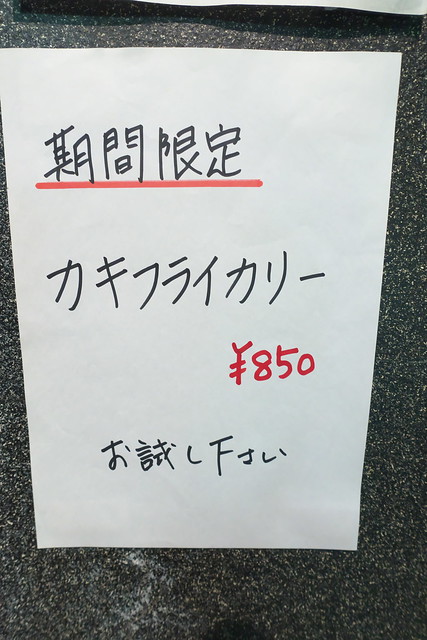 期間限定
カキフライカリー
¥850
お試し下さい